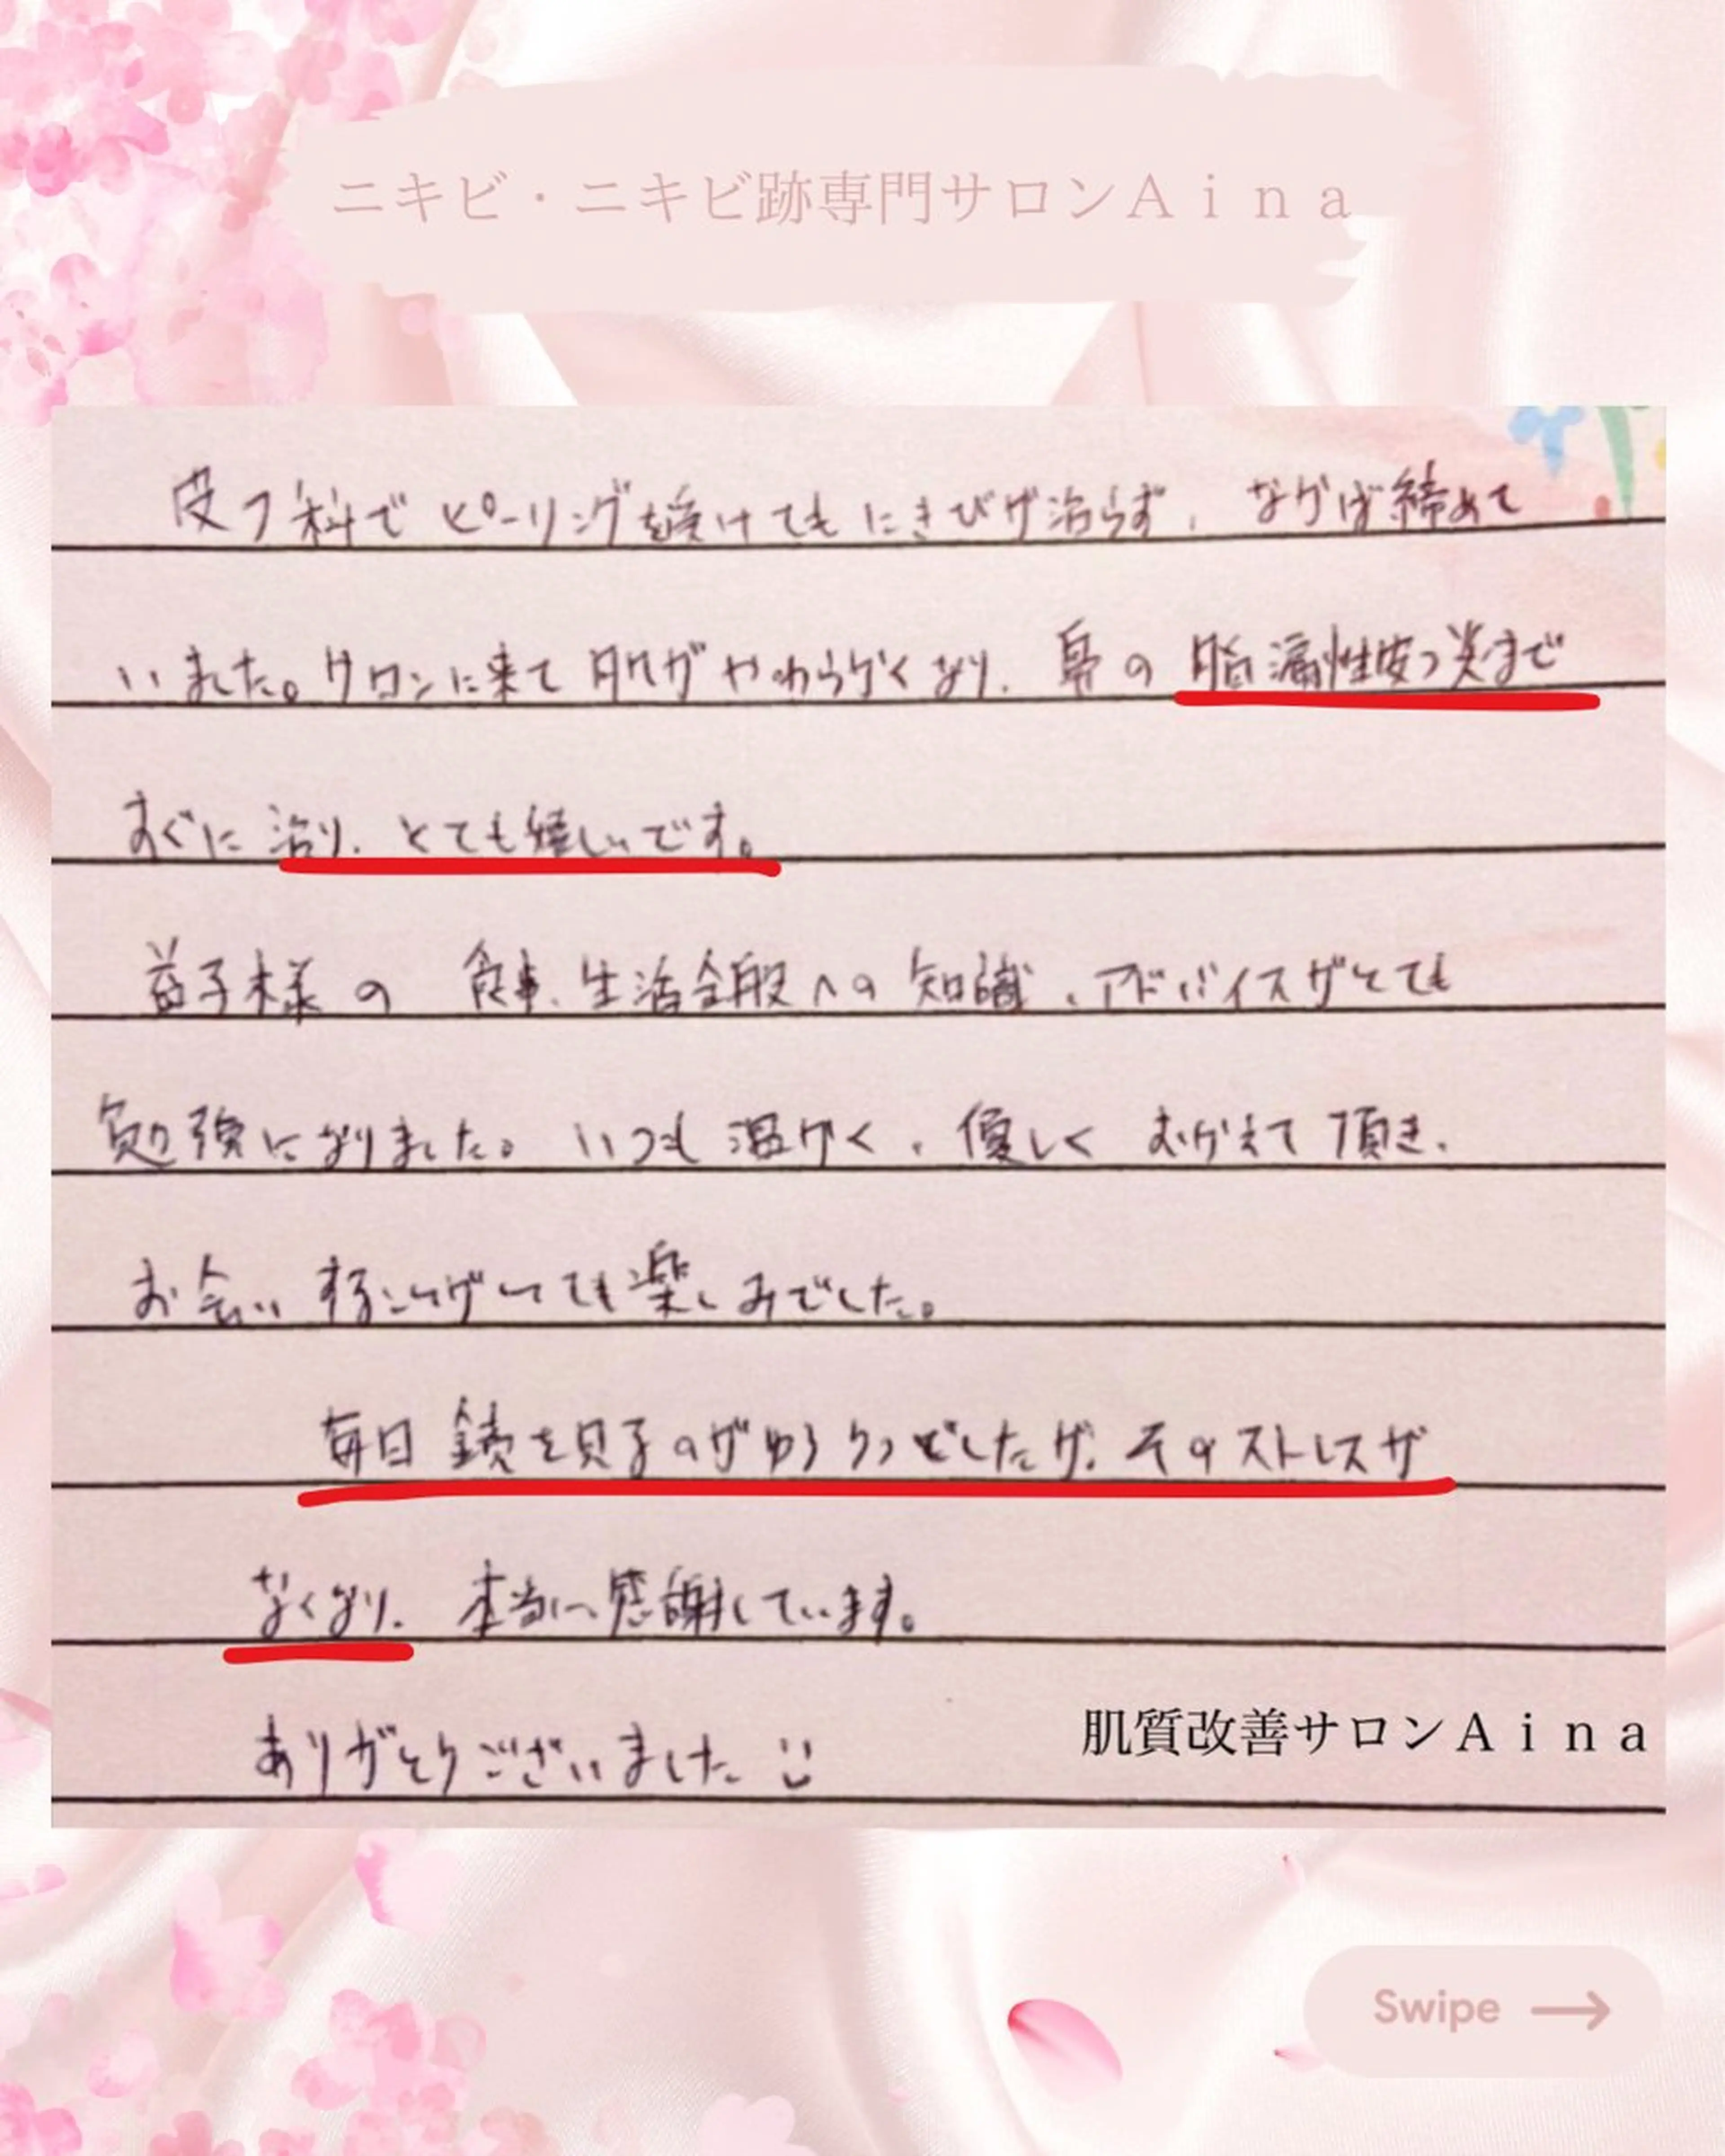 ニキビ・ニキビ跡専門サロンAina
皮フ科でピーリングを受けてもにきびが治らず、なかば締めて
いました。サロンに来て肌がやわらかくなり、鼻の脂漏性皮フ炎まで
すぐに治り、とても嬉しいです。
益子様の食事、生活全般への知識、アドバイスがとても
勉強になりました。いつも温かく、優しくむかえて頂き、
お会いすることがとても楽しみでした。
毎日鏡を見るのがゆううつでしたが、そのストレスが
なくなり、本当に感謝しています。
ありがとうございました
肌質改善サロンAina
Swipe →